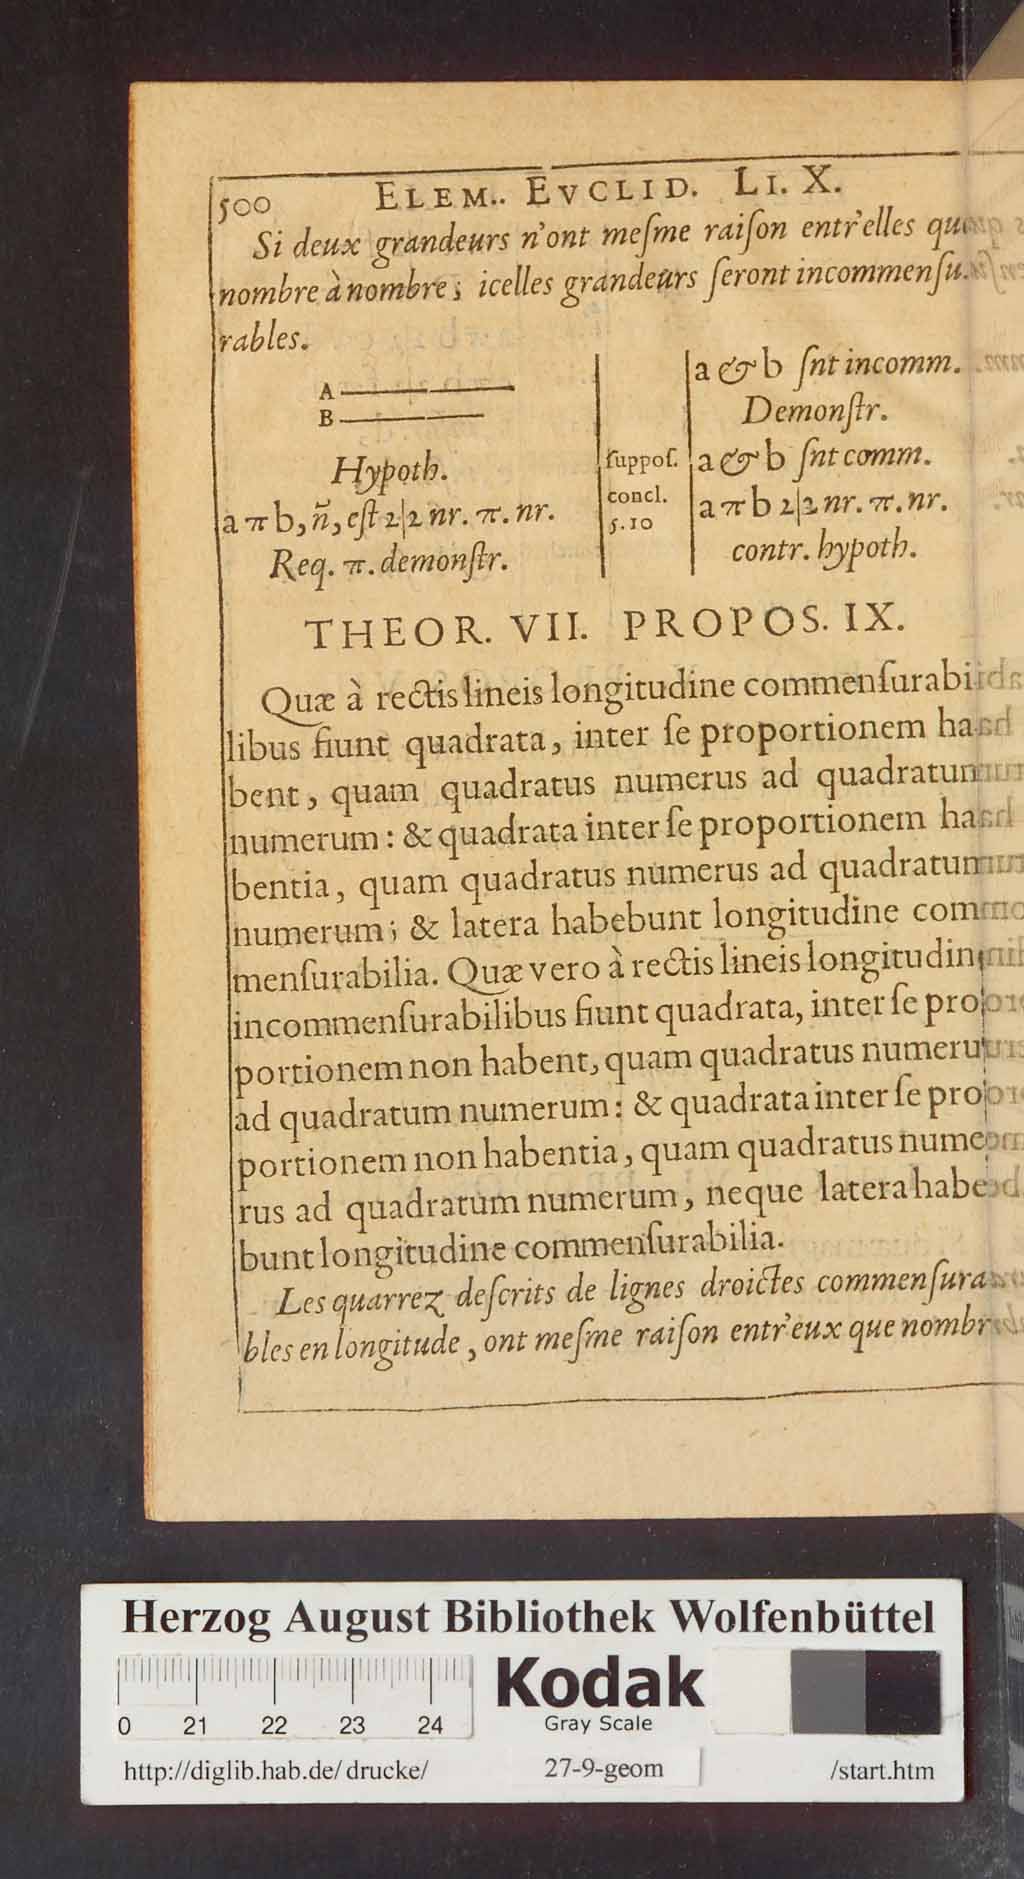 500 ELEM.. EVCLID. LI. X.
Si deux grandeurs n'ont meſme raiſon entr'elles que
nombre à nombre; icelles grandeurs ſeront incommenſu-
rables.
A
B
Hypoth.
a π b, ñ, eſt 2|2 nr. π. nr.
Req. π. demonſtr.
a & b ſnt incomm.
Demonſtr.
ſuppoſ. a & b ſnt comm.
concl. a π b 2|2 nr. π. nr.
5.10
contr. hypoth.
THEOR. VII. PROPOS. IX.
Quæ à rectis lineis longitudine commenſurabi-
libus fiunt quadrata, inter ſe proportionem ha-
bent, quam quadratus numerus ad quadratum
numerum: & quadrata inter ſe proportionem ha-
bentia, quam quadratus numerus ad quadratum
numerum; & latera habebunt longitudine com-
menſurabilia. Quæ vero à rectis lineis longitudine
incommenſurabilibus fiunt quadrata, inter ſe pro-
portionem non habent, quam quadratus numerus
ad quadratum numerum: & quadrata inter ſe pro-
portionem non habentia, quam quadratus nume-
rus ad quadratum numerum, neque latera habe-
bunt longitudine commenſurabilia.
Les quarrez deſcrits de lignes droictes commenſura-
bles en longitude, ont meſme raiſon entr'eux que nombre
Herzog August Bibliothek Wolfenbüttel
Kodak
Gray Scale
0 21 22 23 24
http://diglib.hab.de/drucke/ 27-9-geom /start.htm